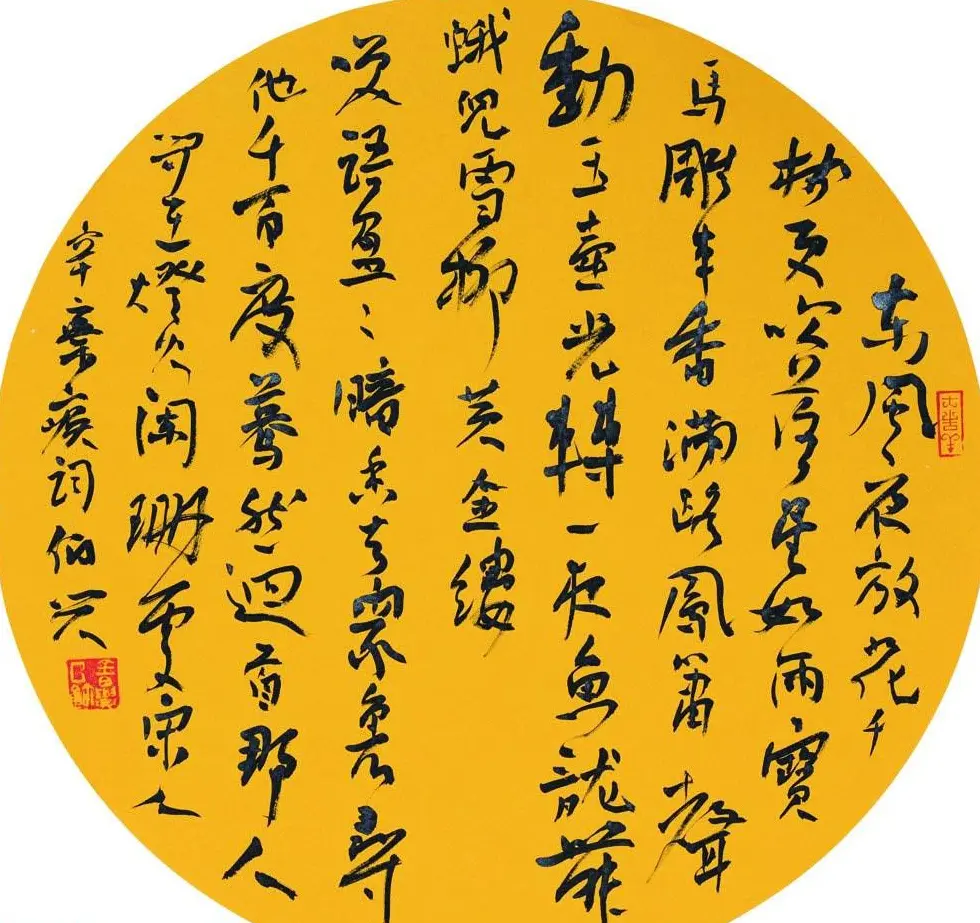 東風夜放花千
樹更吹落星如雨寶
馬雕車香滿路鳳簫聲
動玉壺光轉一夜魚龍舞
蛾兒雪柳黃金縷
笑語盈〻暗香去眾裏尋
他千百度驀然迴首那人
卻在燈火闌珊處宋人
辛棄疾詞伯